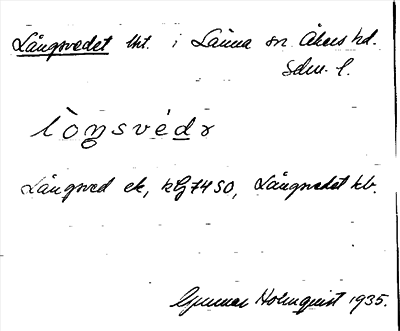 Långsvedet lht. i Länna sn Åkers hd.
Sdm. l.
lòŋsvédɜ
Långsved ek, kG7450, Långsvedet kb.
Gunnar Holmquist 1935.